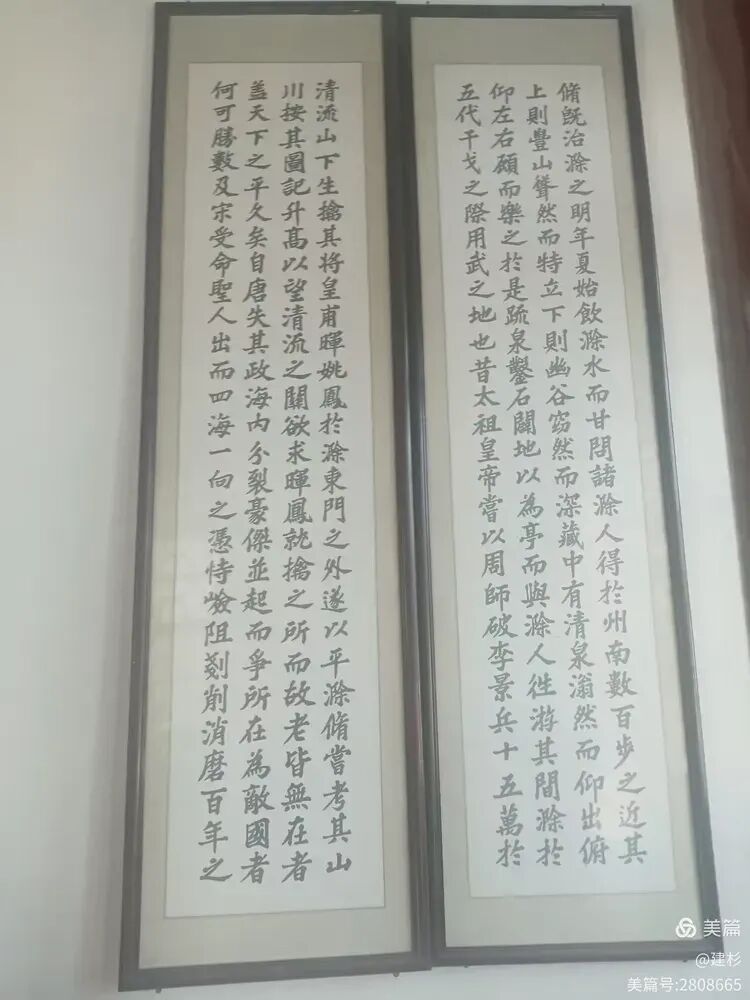 脩旣治滁之明年夏始飲滁水而甘問諸滁人得於州南數百步之近其
上則豐山聳然而特立下則幽谷窈然而深藏中有清泉滃然而仰出俯
仰左右顧而樂之於是疏泉鑿石闢地以為亭而與滁人徃游其間滁於
五代干戈之際用武之地也昔太祖皇帝嘗以周師破李景兵十五萬於
清流山下生擒其將皇甫暉姚鳳於滁東門之外遂以平滁脩嘗考其山
川按其圖記升髙以望清流之關欲求暉鳳就擒之所而故老皆無在者
盖天下之平久矣自唐失其政海内分裂豪傑並起而爭所在為敵國者
何可勝數及宋受命聖人出而四海一向之憑恃嶮阻剗削消磨百年之
美篇
@建杉
美篇号:2808665